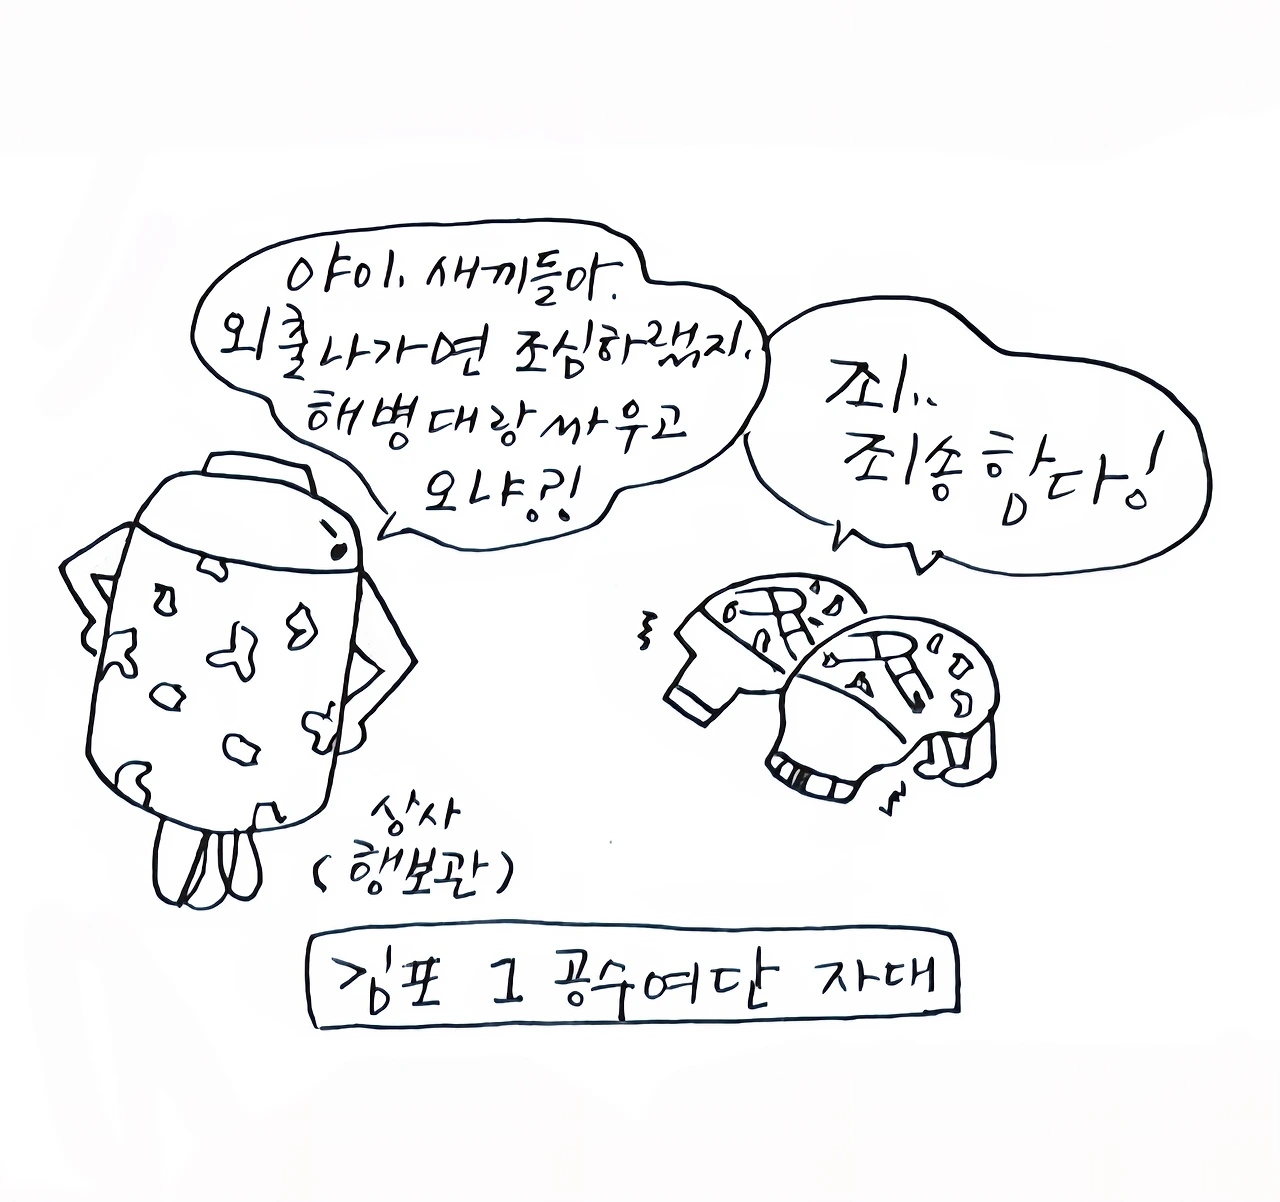 야이. 새끼들아.
외출나가면 조심하랬지.
해병대랑 싸우고
오냐?!
죄..
죄송함다!
상사
(행보관)
김포 1 공수여단 자대